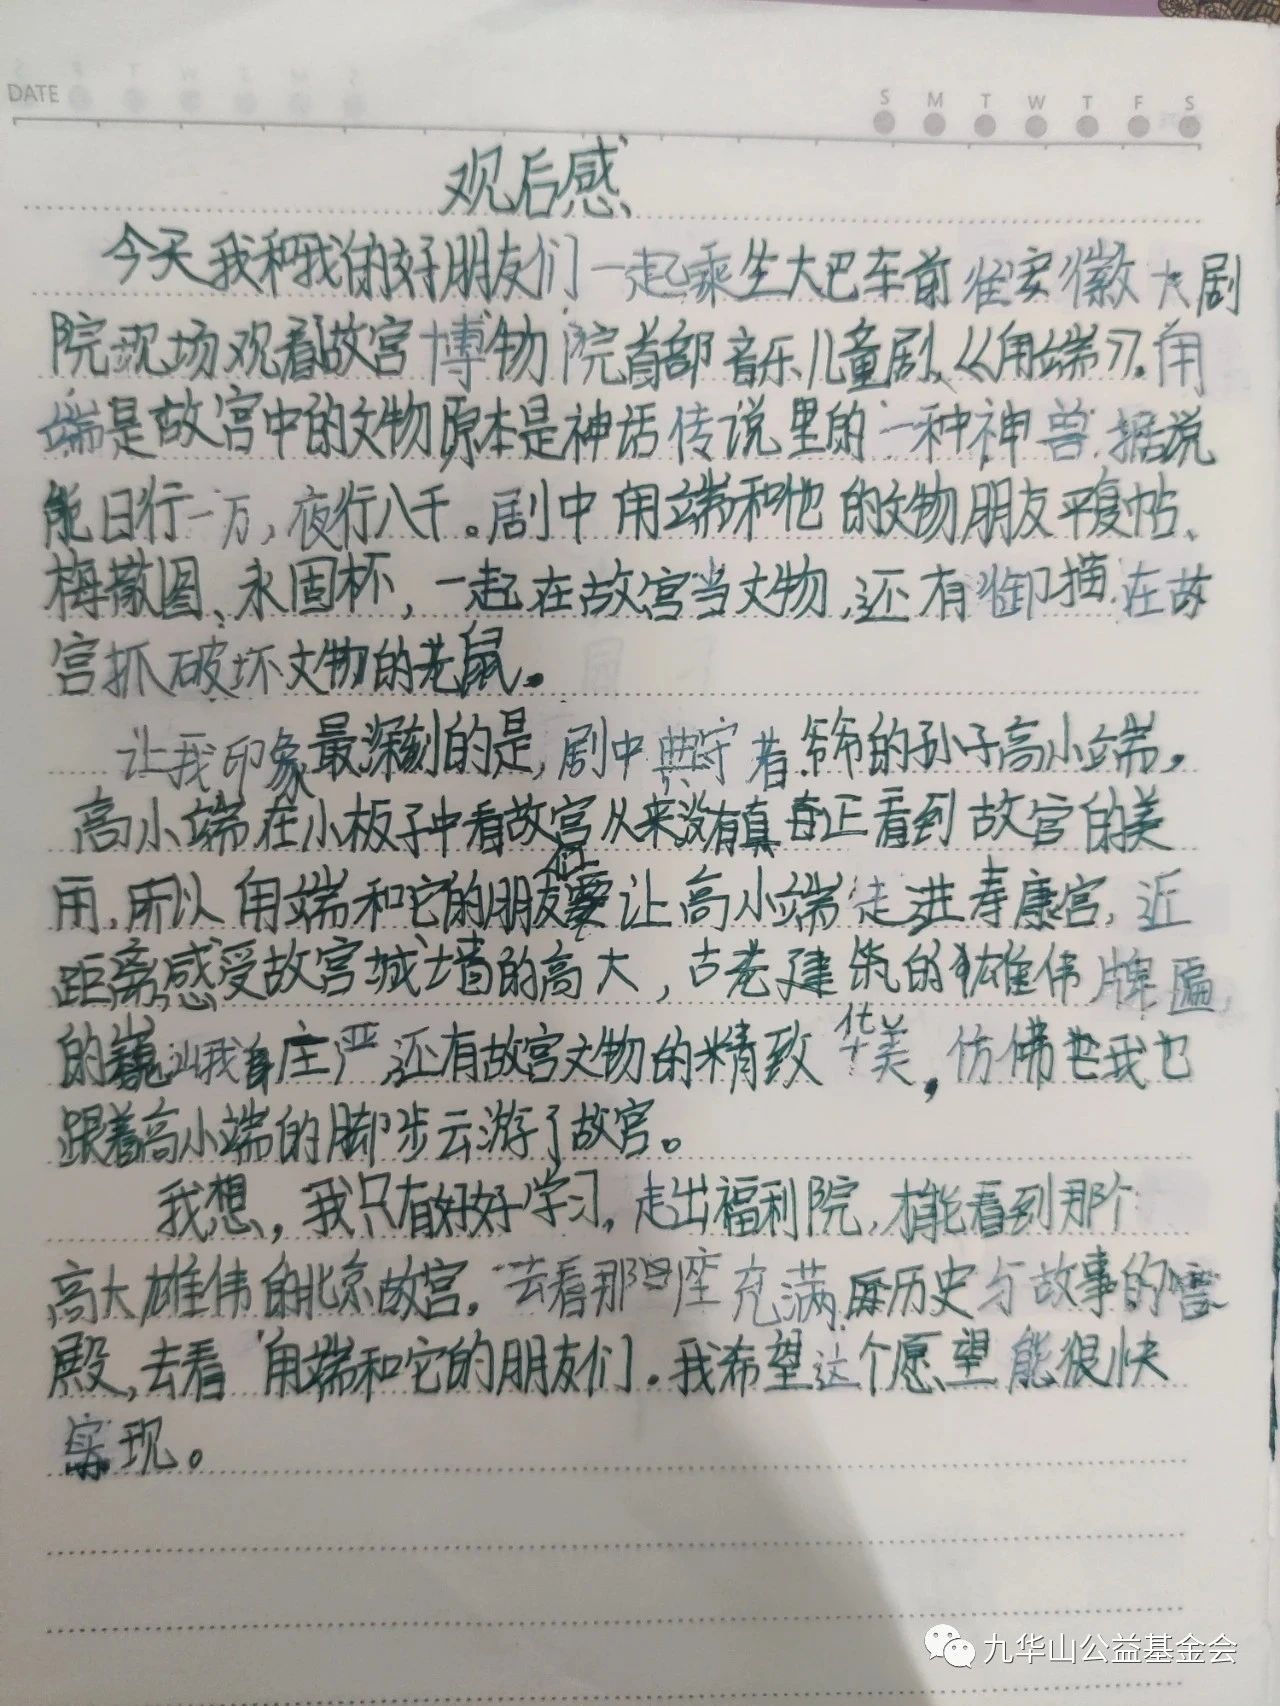 DATE
S M T W T F S
观后感
今天我和我的好朋友们一起乘坐大巴车前往安徽大剧
院现场观看故宫博物院首部音乐儿童剧《甪端》。甪
端是故宫中的文物原本是神话传说里的一种神兽.据说
能日行一万,夜行八千。剧中甪端和他的文物朋友平复帖、
梅散图、永固杯,一起在故宫当文物,还有御猫.在故
宫抓破坏文物的老鼠。
让我印象最深刻的是,剧中 守着爷爷的孙子高小端,
高小端在小板子中看故宫从来没有真正看到故宫的美
用,所以甪端和它的朋友们要让高小端走进寿康宫,近
距离感受故宫城墙的高大,古老建筑的雄伟牌匾
的 庄严,还有故宫文物的精致华美,仿佛 我也
跟着高小端的脚步云游了故宫。
我想,我只有好好学习,走出福利院,才能看到那个
高大雄伟的北京故宫,去看那 座充满 历史与故事的宫
殿,去看甪端和它的朋友们.我希望这个愿望能很快
实现。
九华山公益基金会